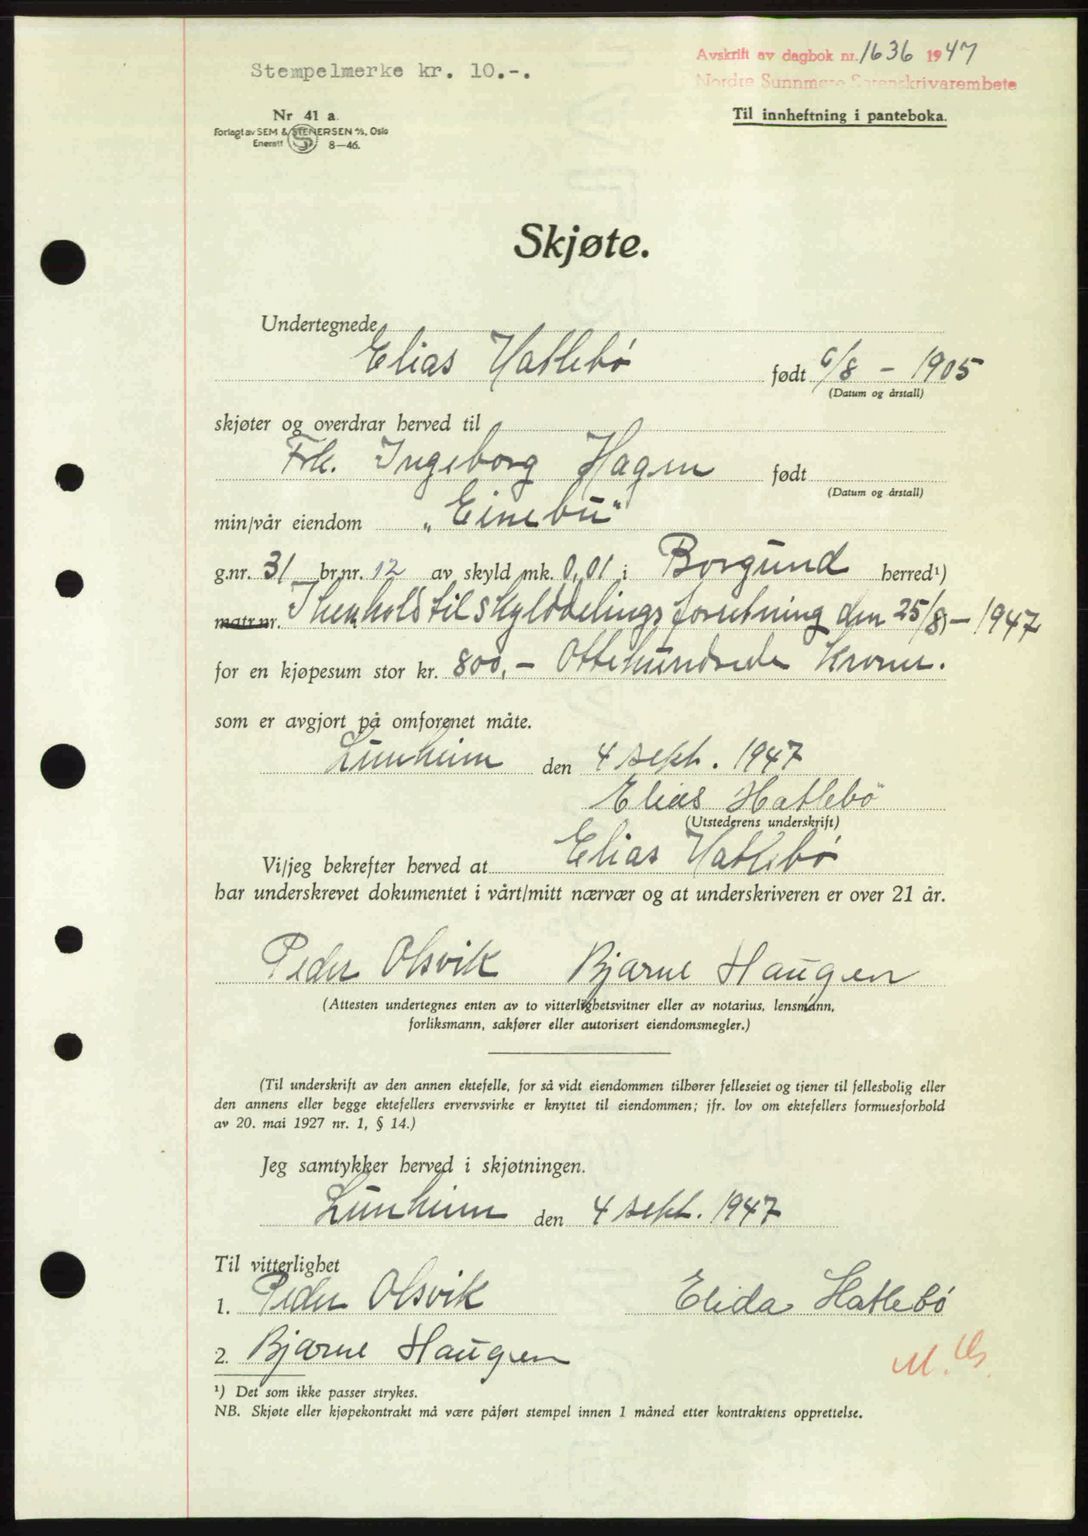 Stempelmerke kr. 10.-.
Avskrift av dagbok nr. 1636 1947
Nordre Sunnmøre Sorenskrivarembete
Nr 41 a.
Forlagt av SEM & STENERSEN A/S, Oslo
Enerett 8—46.
Til innheftning i panteboka.
Skjøte.
Undertegnede
Elias Hatlebö født 6/8 - 1905
(Datum og årstall)
skjøter og overdrar herved til
Frk. Ingeborg Hagen født
(Datum og årstall)
min/vår eiendom "Einebu"
g.nr. 31 br.nr. 12 av skyld mk. 0,01 i Borgund herred¹)
matr.nr. I henhold til skylddelingsforretning den 25/8 - 1947
for en kjøpesum stor kr. 800,- Ottehundrede Kroner.
som er avgjort på omforenet måte.
den 4 sept. 1947
Elias Hatlebö
(Utstederens underskrift)
Vi/jeg bekrefter herved at Elias Hatlebö
har underskrevet dokumentet i vårt/mitt nærvær og at underskriveren er over 21 år.
Peder Olsvik Bjarne Haugen
(Attesten undertegnes enten av to vitterlighetsvitner eller av notarius, lensmann,
forliksmann, sakfører eller autorisert eiendomsmegler.)
(Til underskrift av den annen ektefelle, for så vidt eiendommen tilhører felleseiet og tjener til fellesbolig eller
den annens eller begge ektefellers ervervsvirke er knyttet til eiendommen; jfr. lov om ektefellers formuesforhold
av 20. mai 1927 nr. 1, § 14.)
Jeg samtykker herved i skjøtningen.
den 4 sept. 1947
Til vitterlighet
1. Peder Olsvik Elida Hatlebö
2. Bjarne Haugen
¹) Det som ikke passer strykes.
NB. Skjøte eller kjøpekontrakt må være påført stempel innen 1 måned etter kontraktens opprettelse.